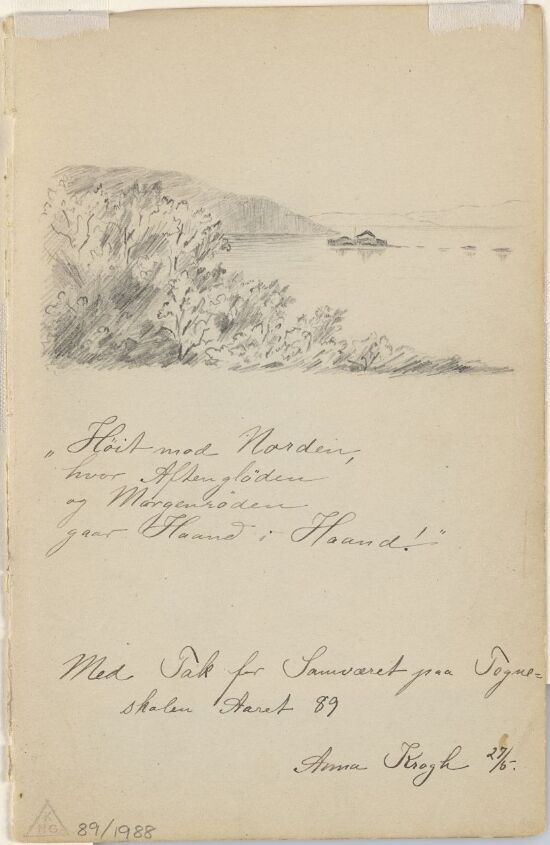 „Höit mod Norden,
hvor Aftenglöden
og Morgenröden
gaar Haand i Haand!"
Med Tak for Samværet paa Tegne=
skolen Aaret 89
Anna Krogh 27/5.
K
HG
89/1988